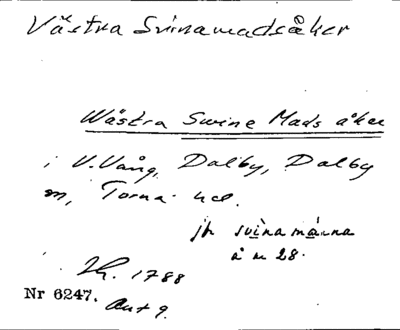 Västra Svinamadsåker
Wästra Swine Mads åker
i V. Vång, Dalby, Dalby
sn, Torna hd.
jfr svinamárna
å n 28.
1788
Nr 6247. Akt 9.